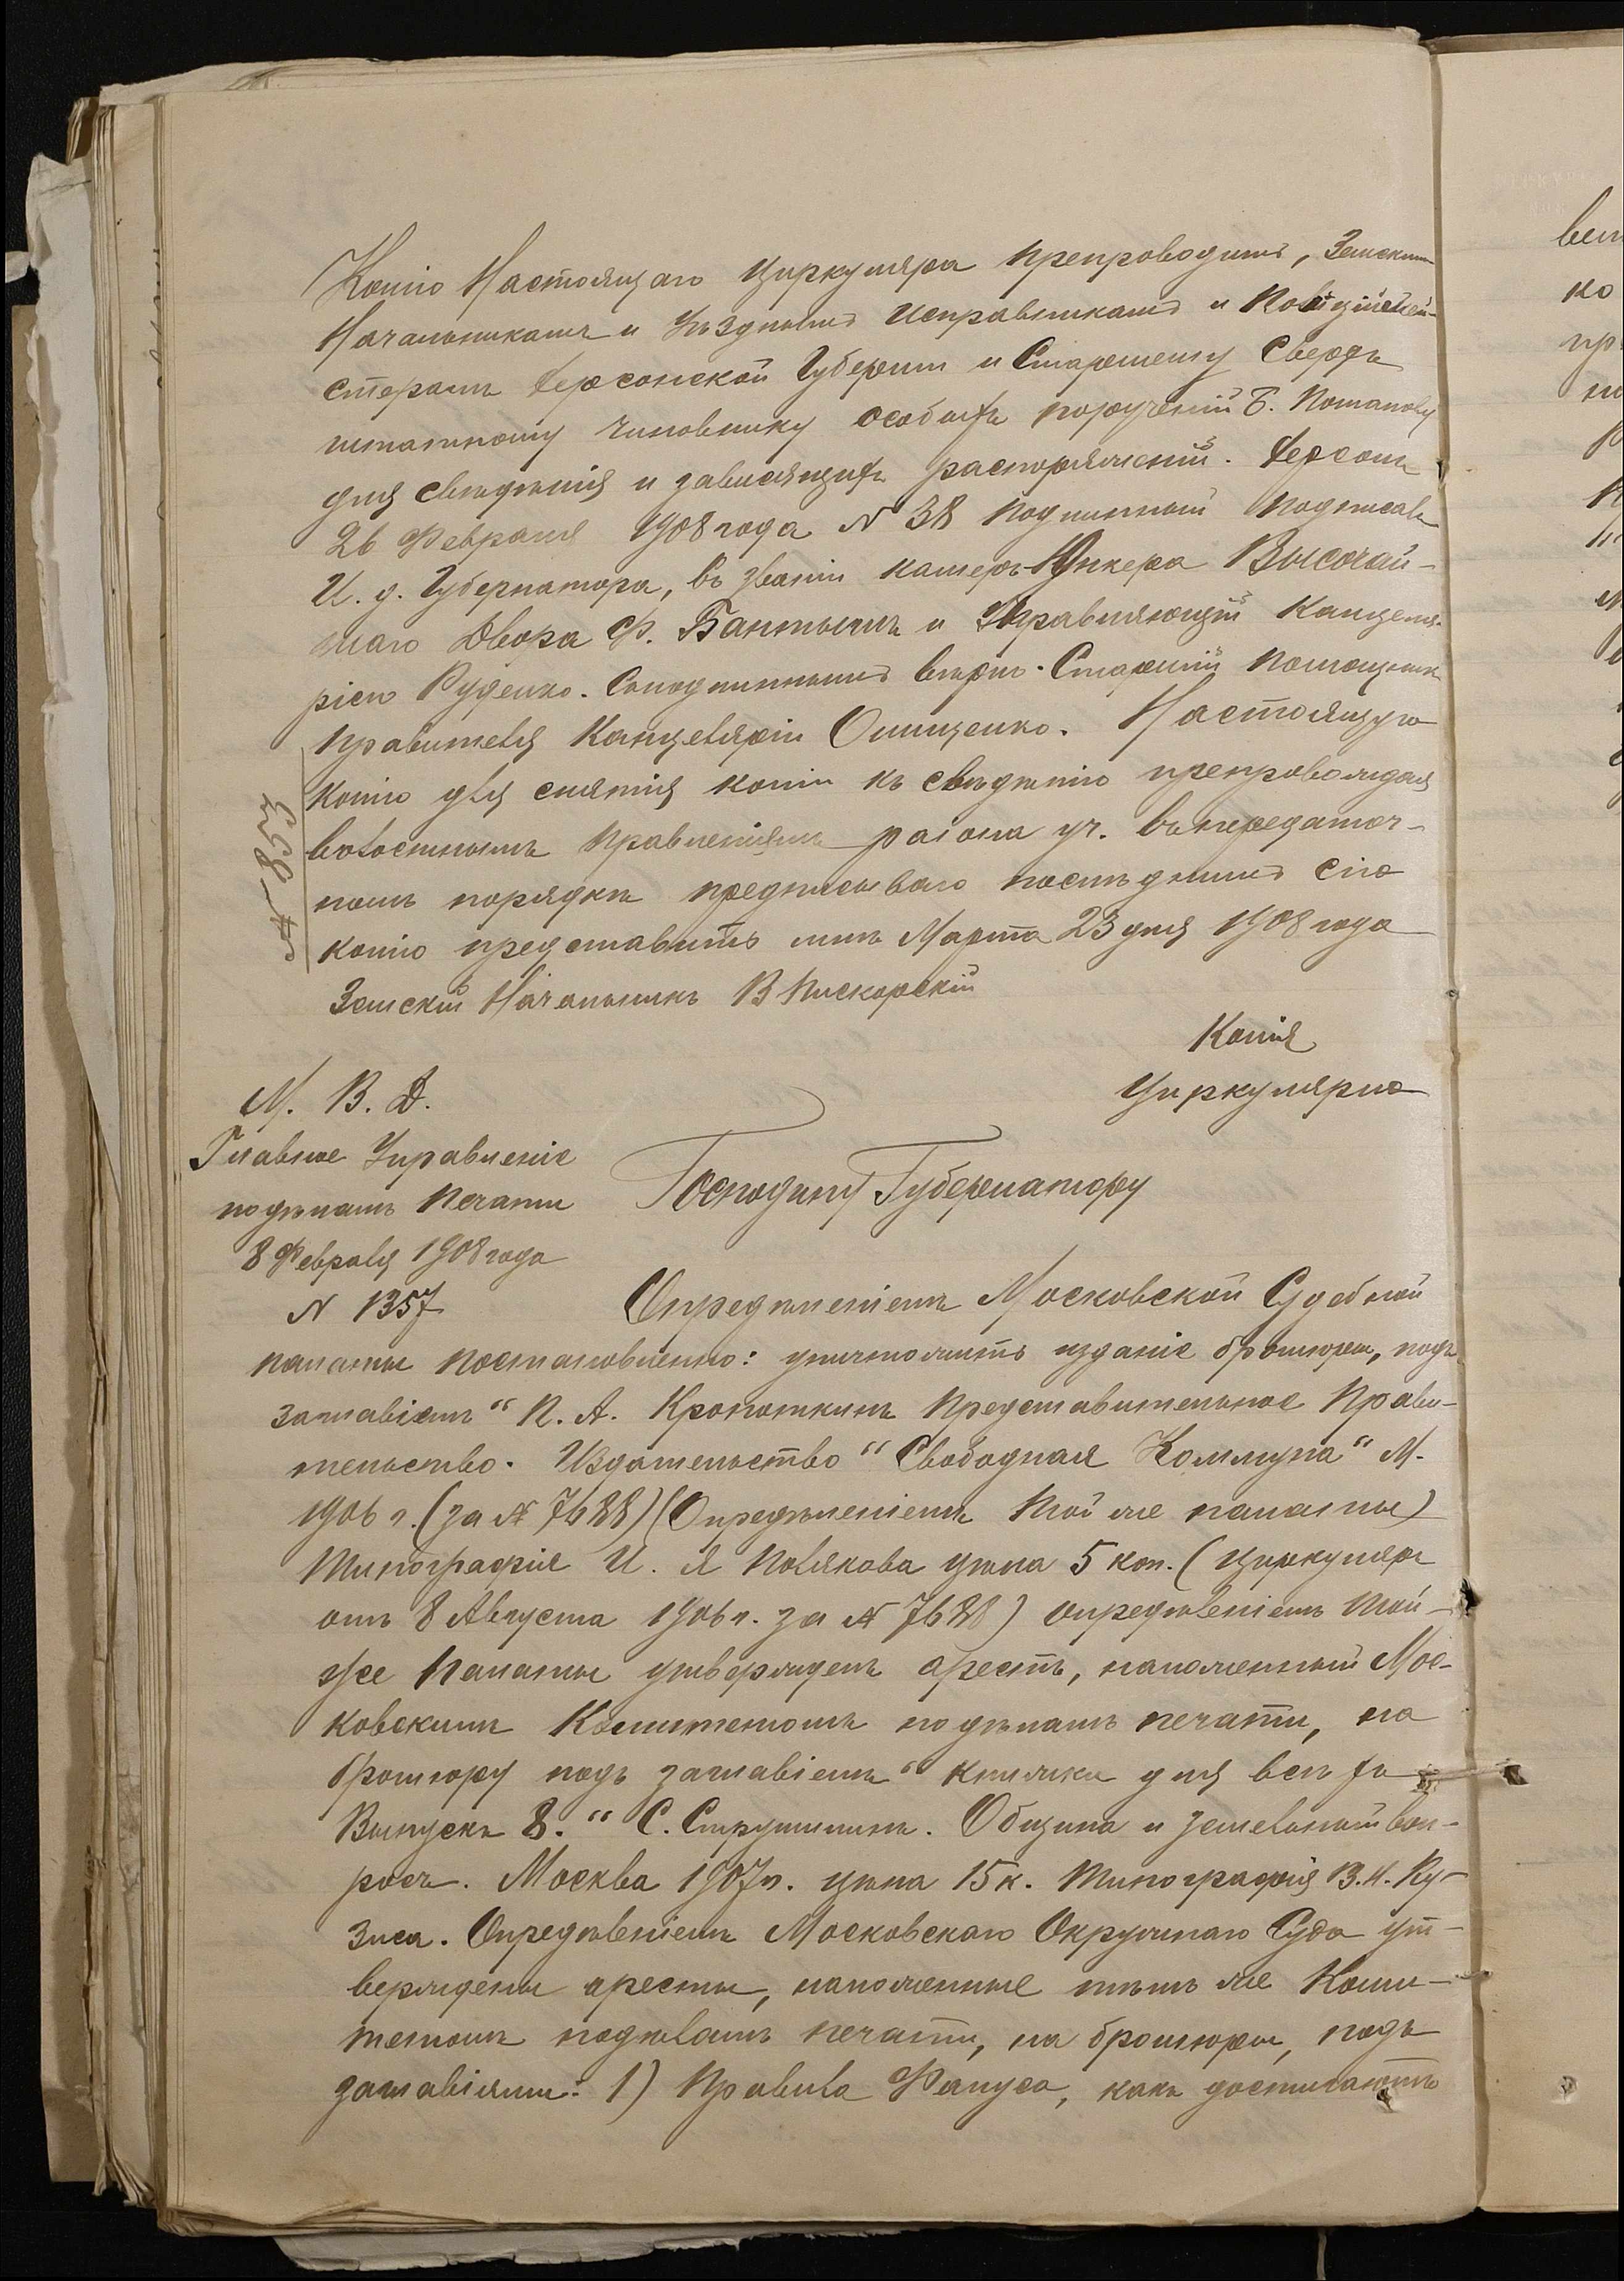 Копію Настоящаго циркуляра препроводить, Земскимъ
Начальникамъ и Уѣзднымъ исправникамъ и Полицiймей-
стерамъ Херсонской Губернiи и Старшему Сверхъ
штатному чиновнику особыхъ порученiй Б. Потапову
для свѣдѣнiя и зависящихъ распоряженiй. Херсонъ
26 Февраля 1908 года N 38 Подлинный Подписалъ
И. д. Губернатора, въ званiи камеръ-Юнкера Высочай-
шаго Двора Ф. Бантышъ и Управляющiй Канцеля-
рiею Руденко. Съподлиннымъ вѣрно. Старшiй Помощникъ
Правителя Канцелярiи Онищенко. Настоящую
копiю для снятiя копiи къ свѣдѣнiю препровождая
волостнымъ Правленiямъ раiона уч. въпередаточ-
номъ порядкѣ предписываю послѣднимъ сiю
копiю представить мнѣ Марта 23 дня 1908 года
Земскiй Начальникъ В Пискорскiй
N 853
Копiя
Циркулярно
М. В. Д.
Главное Управленiе
подѣламъ Печати
8 Февраля 1908 года
N 1357
Господину Губернатору
Опредѣленiемъ Московской Судебной
палаты постановлено: уничтожить изданiе брошюры, подъ
заглавiемъ "П. А. Кропоткинъ Представительное Прави-
тельство. Издательство "Свободная Коммуна" М.
1906 г. (за N 7688) (Опредѣленiемъ Той же палаты)
Типографiя И. Я Полякова цѣна 5 коп. (циркуляръ
отъ 8 Августа 1906 г. за N 7688) опредѣленiемъ той-
же Палаты утвержденъ арестъ, наложенный Мос-
ковскимъ Комитетомъ подѣламъ печати, на
брошюру подъ заглавiемъ "Книжки для всѣхъ
Выпускъ 8." С. Струшилинъ. Община и земельный воп-
росъ. Москва 1907 г. цѣна 15 к. Типографiя В. И. Ку-
зиса. Опредѣленiемъ Московскаго Окружнаго Суда ут-
верждены аресты, наложенные тѣмъ же Коми-
тетомъ подѣламъ печати, на брошюры, подъ
заглавiями: 1) Правила Фануса, какъ достигаютъ